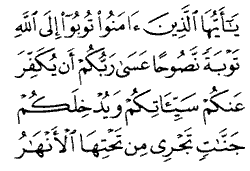 يَـٰٓأَيُّهَا ٱلَّذِينَ ءَامَنُوا۟ تُوبُوٓا۟ إِلَى ٱللَّهِ
تَوْبَةً نَّصُوحًا عَسَىٰ رَبُّكُمْ أَن يُكَفِّرَ
عَنكُمْ سَيِّـَٔاتِكُمْ وَيُدْخِلَكُمْ
جَنَّـٰتٍ تَجْرِى مِن تَحْتِهَا ٱلْأَنْهَـٰرُ